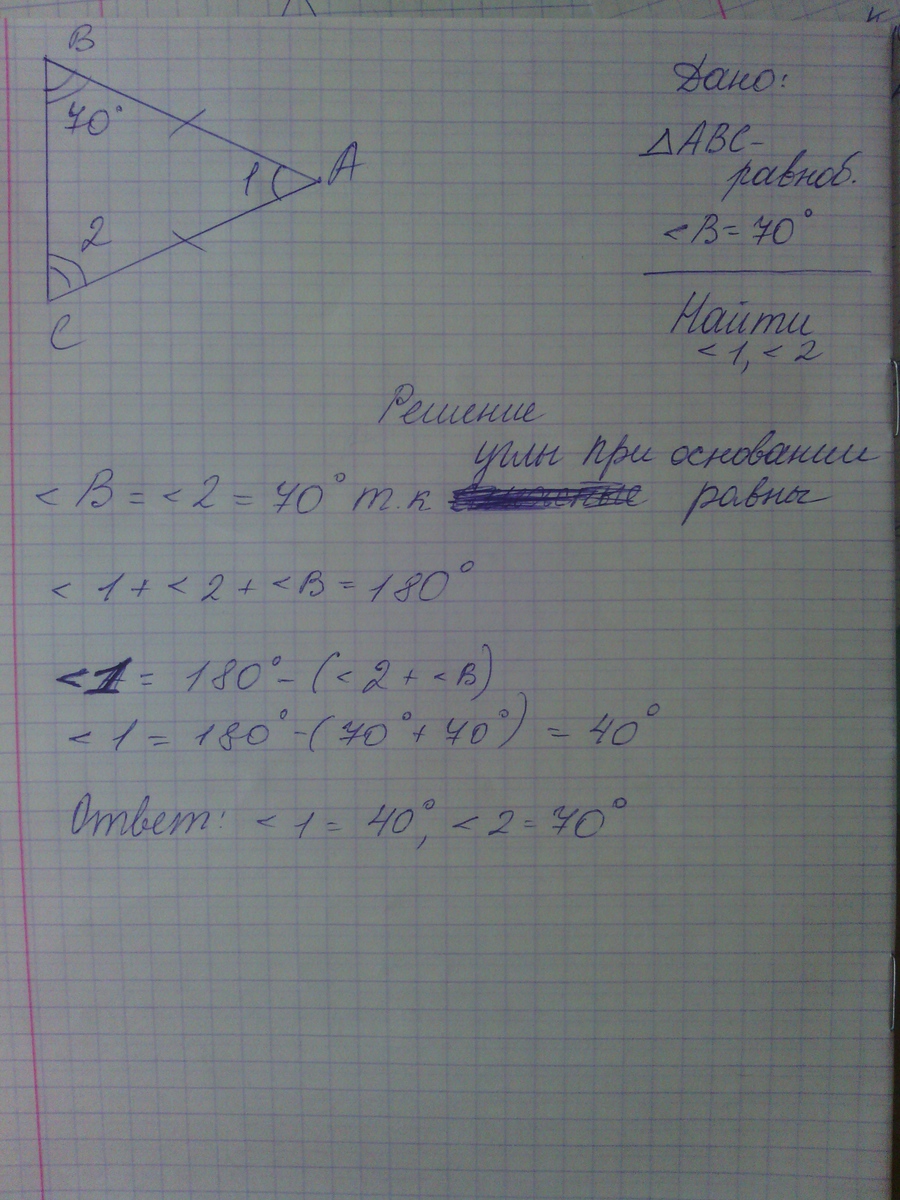 B
70°
1
A
2
C
Дано:
△ABC-
равноб.
<B=70°
Найти
<1,<2
Решение
углы при основании
<B=<2=70° т.к равны
<1+<2+<B=180°
<1=180°-(<2+<B)
<1=180°-(70°+70°)=40°
Ответ: <1=40°, <2=70°